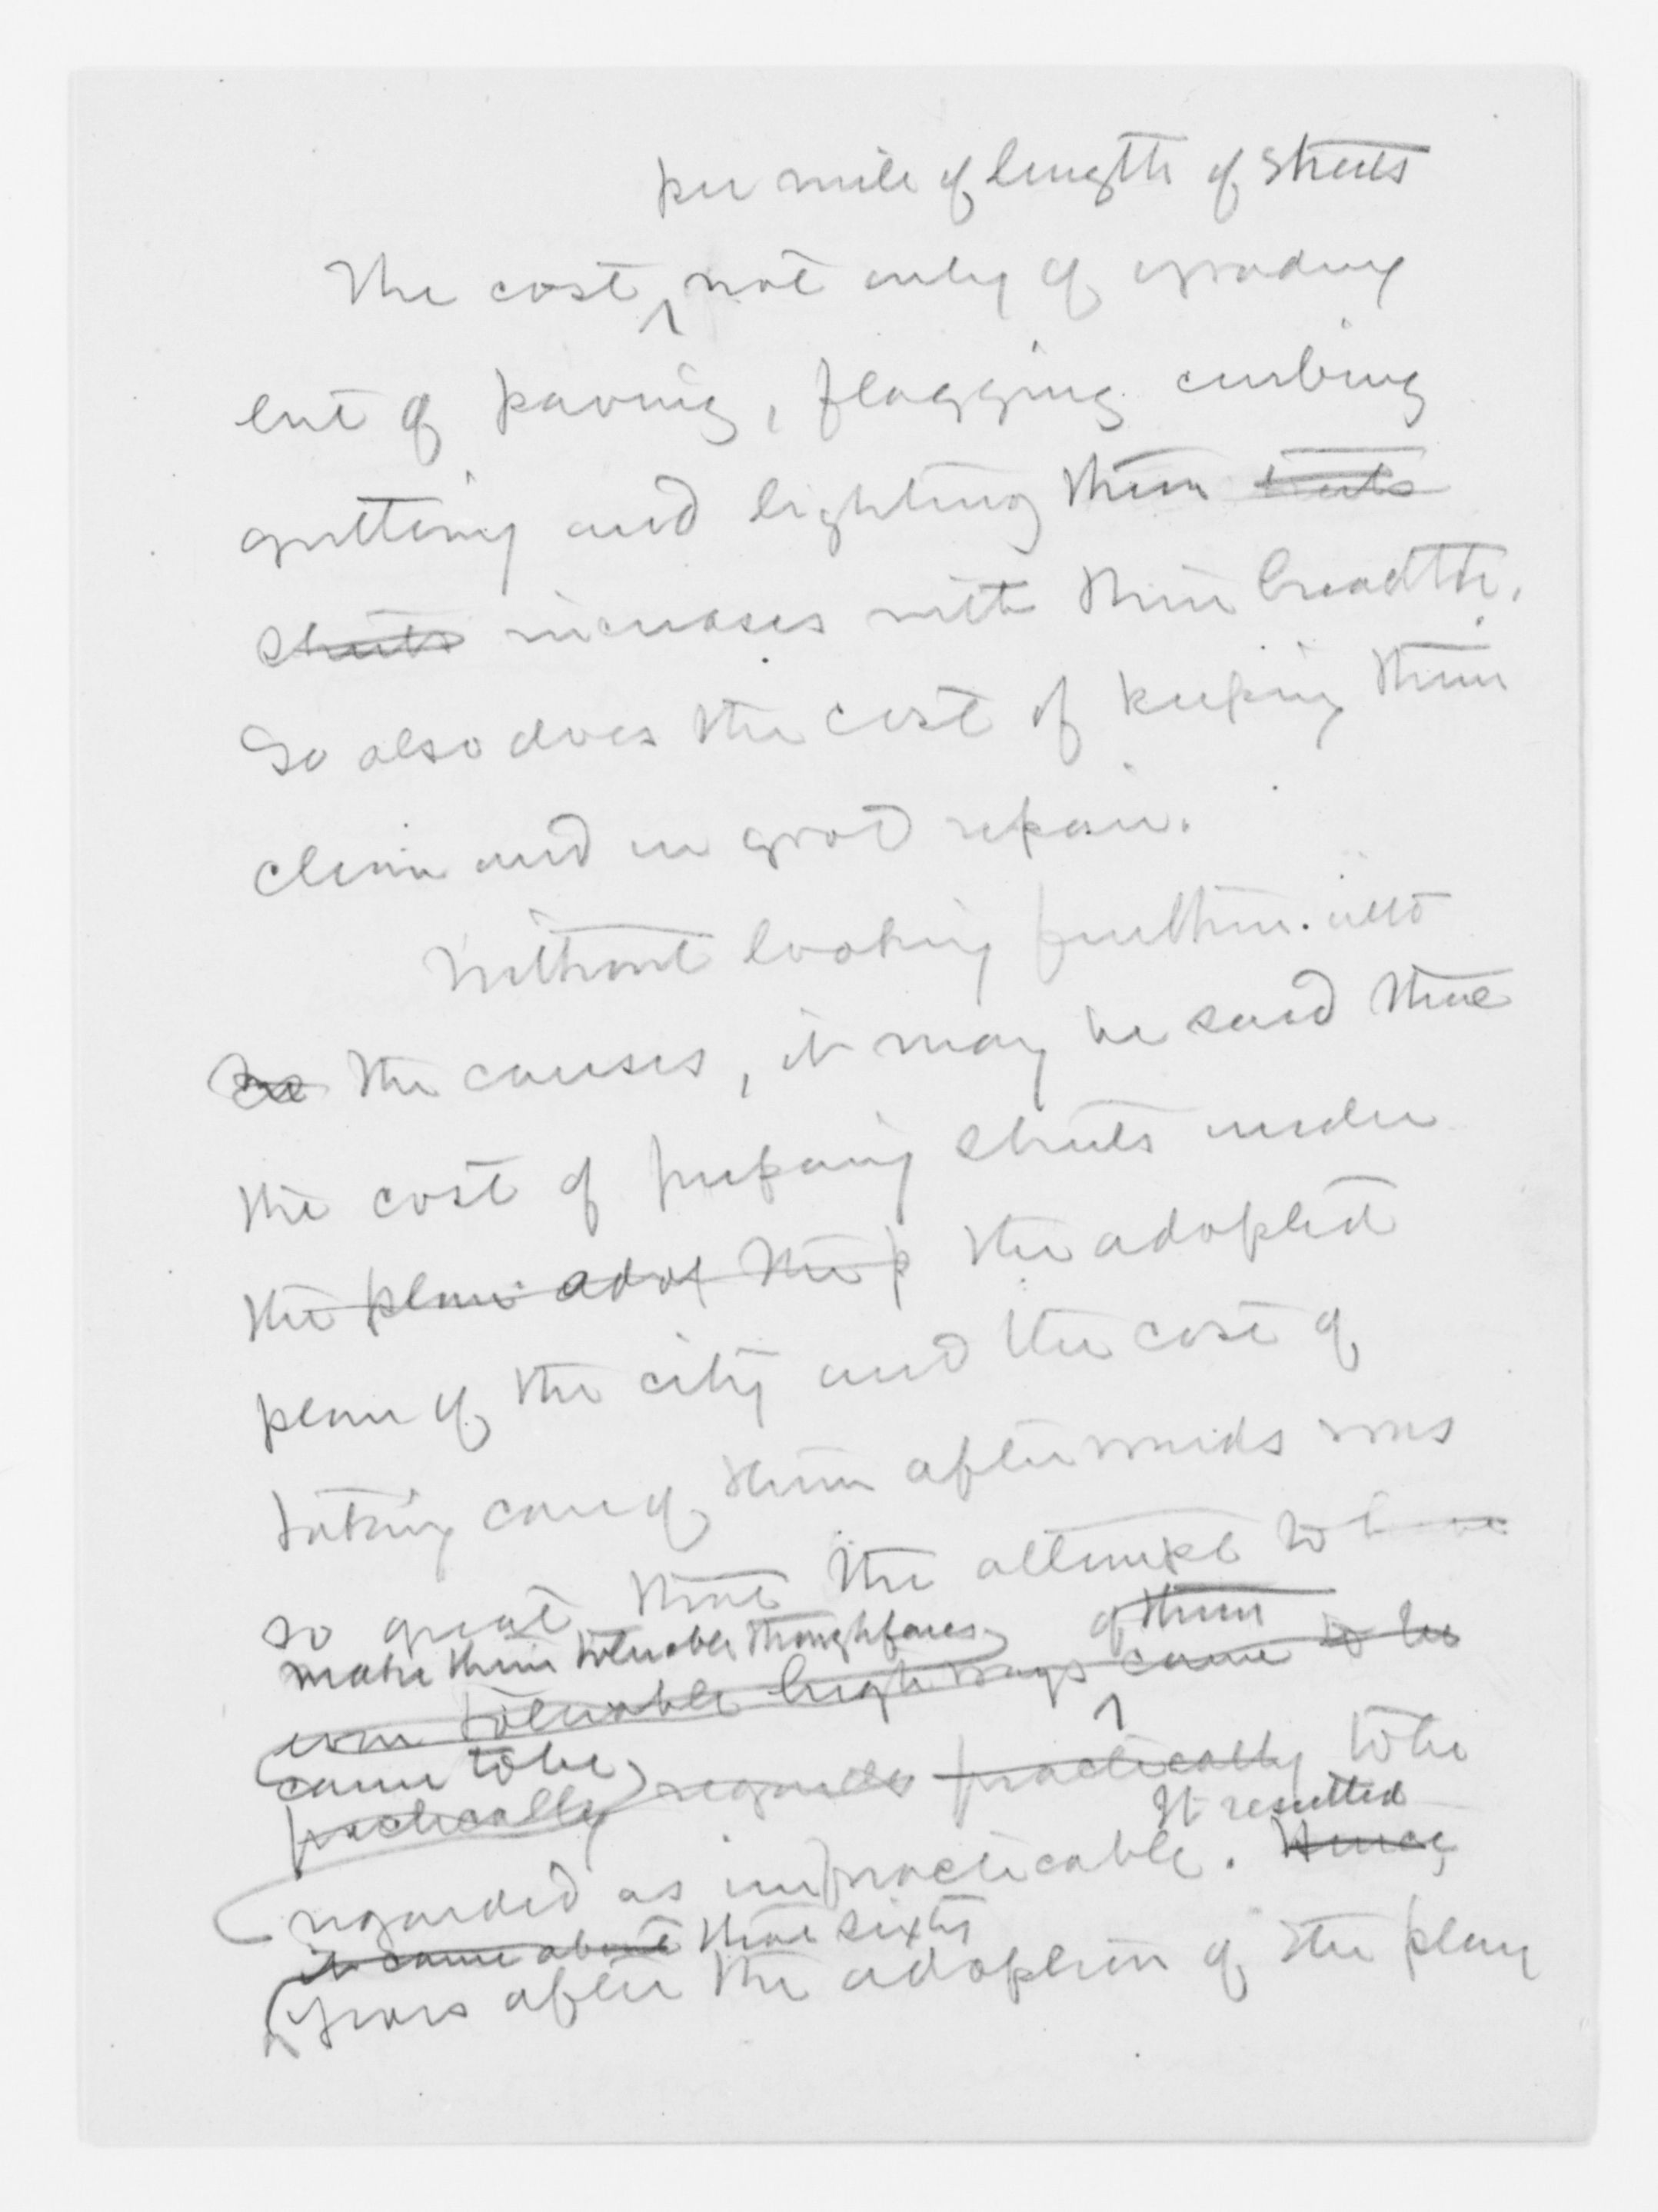 per mile of length of streets
The cost not only of grading
but of paving, flagging curbing
guttering and lighting them
streets increases with their breadth.
So also does the cost of keeping them
clean and in good repair.
Without looking further into
the causes, it may be said that
the cost of preparing streets under
the plan adop the p the adopted
plan of the city and the cost of
taking care of them afterwards was
so great that the attempt to have
make them tolerable thoroughfares of them
even tolerable highways came to be
came to be
practically regarded practically to be
It resulted
regarded as impracticable. Hence,
it came about that sixty
years after the adoption of the plan